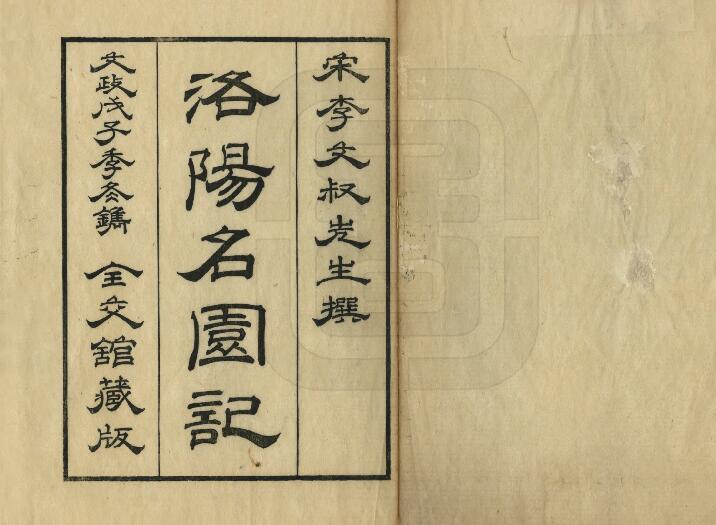 宋李文叔先生撰
洛陽名園記
文政戊子季冬鐫 全交舘藏版